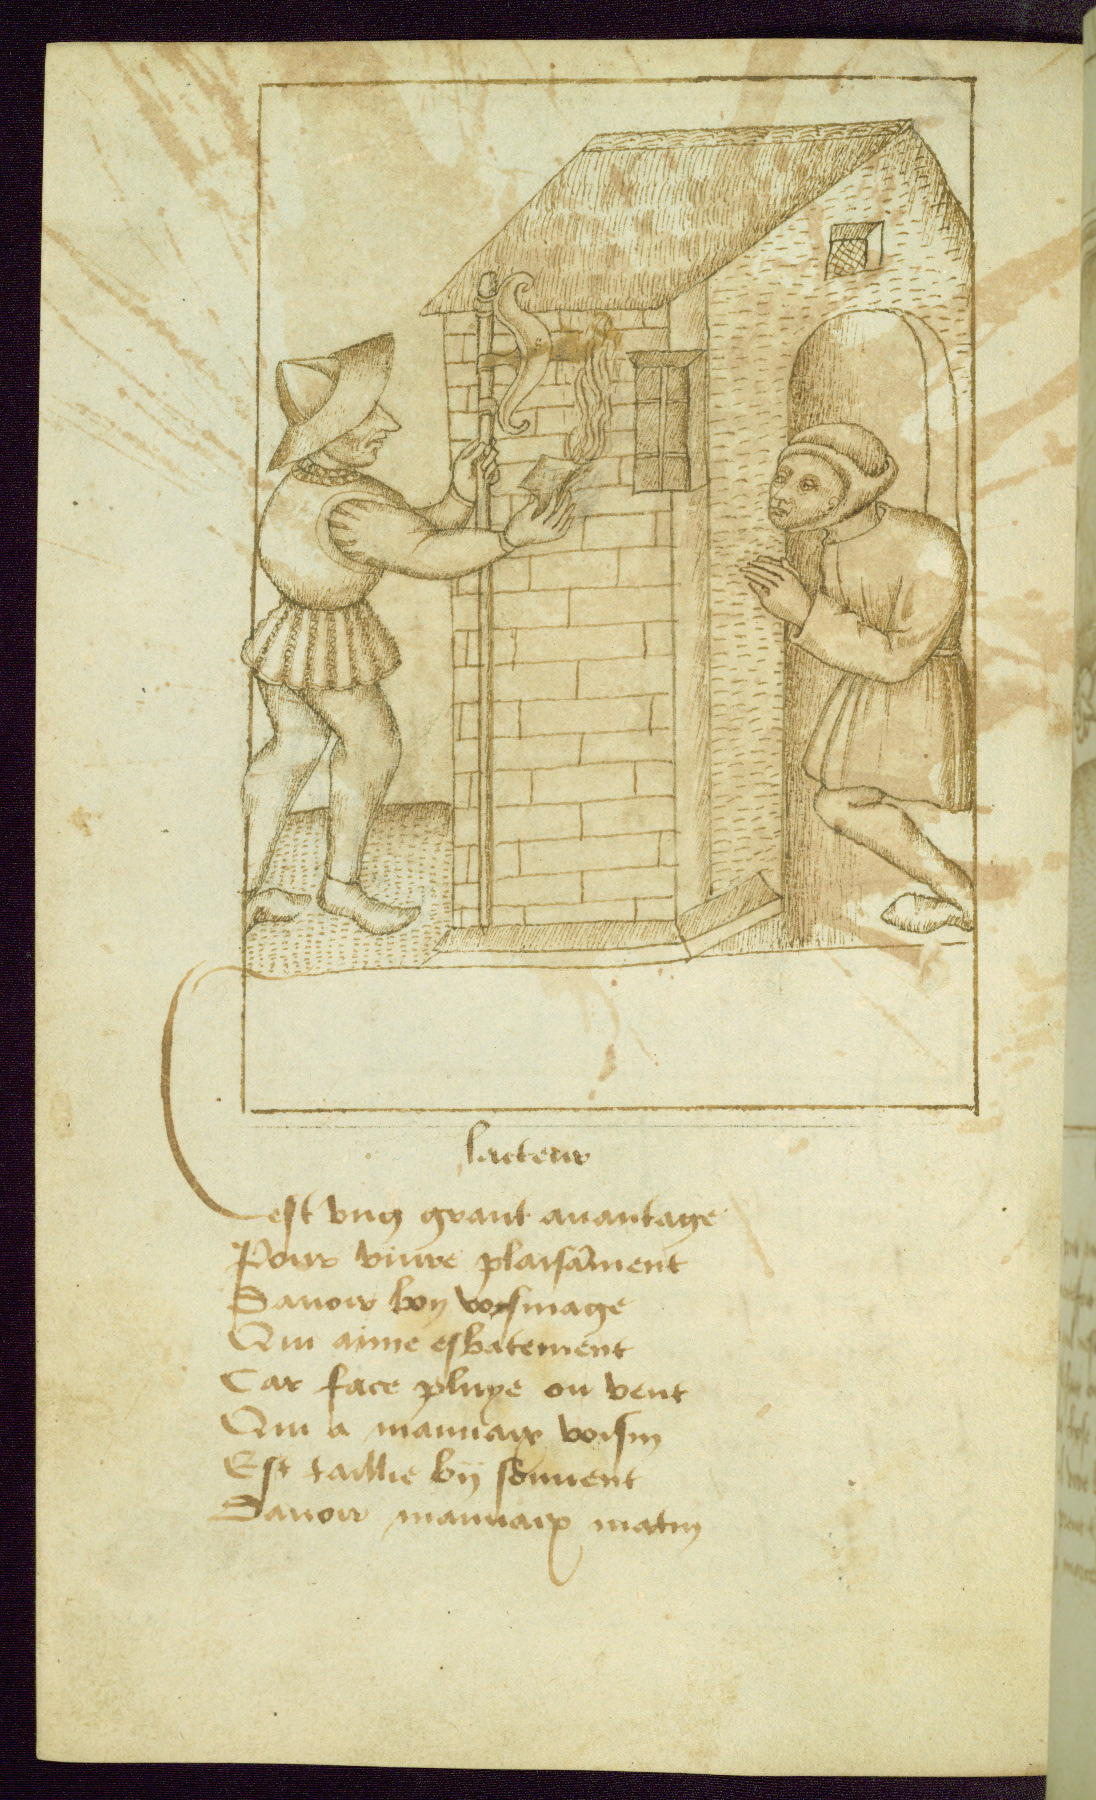 lacteur
Cest vng grant auantage
Pour viure plaisãment
Dauoir bon voysinage
Qui aime esbatement
Car face pluye ou vent
Qui a mauuaix voisin
Est taillie biẽ souuent
Dauoir mauuaix matin